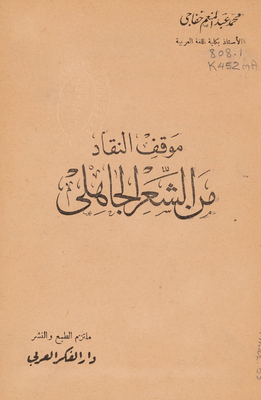 محمد عبد المنعم خفاجي
الأستاذ بكلية اللغة العربية
808.1
K452mA
موقف النقاد
من الشعر الجاهلي
ملتزم الطبع والنشر
دار الفكر العربي